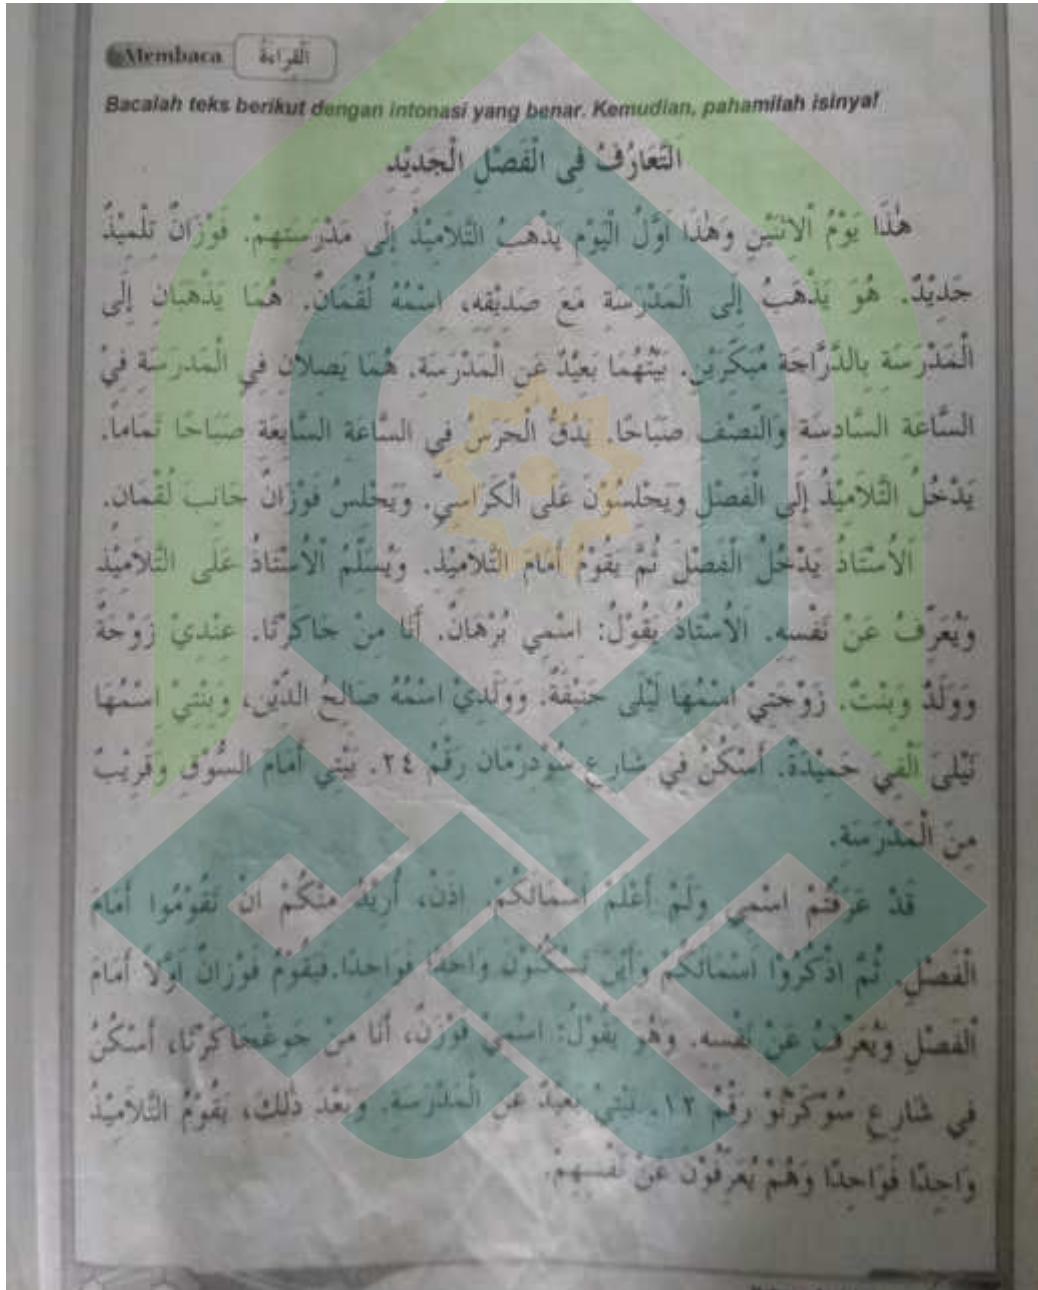 Membaca القراءة
Bacalah teks berikut dengan intonasi yang benar. Kemudian, pahamilah isinya!
اَلتَّعَارُفُ فِى الْفَصْلِ الْجَدِيْدِ
هٰذَا يَوْمُ اْلاِثْنَيْنِ وَهٰذَا اَوَّلُ الْيَوْمِ يَذْهَبُ التَّلاَمِيْذُ إِلَى مَدْرَسَتِهِمْ. فَوْزَانُ تِلْمِيْذٌ
جَدِيْدٌ. هُوَ يَذْهَبُ إِلَى الْمَدْرَسَةِ مَعَ صَدِيْقِهِ، اِسْمُهُ لُقْمَانُ. هُمَا يَذْهَبَانِ إِلَى
الْمَدْرَسَةِ بِالدَّرَّاجَةِ مُبَكِّرَيْنِ. بَيْتُهُمَا بَعِيْدٌ عَنِ الْمَدْرَسَةِ. هُمَا يَصِلاَنِ فِي الْمَدْرَسَةِ فِيْ
السَّاعَةِ السَّادِسَةِ وَالنِّصْفِ صَبَاحًا. يَدُقُّ الْجَرَسُ فِي السَّاعَةِ السَّابِعَةِ صَبَاحًا تَمَامًا.
يَدْخُلُ التَّلاَمِيْذُ إِلَى الْفَصْلِ وَيَجْلِسُوْنَ عَلَى الْكَرَاسِيِّ. وَيَجْلِسُ فَوْزَانُ جَانِبَ لُقْمَانَ.
اَلأُسْتَاذُ يَدْخُلُ الْفَصْلَ ثُمَّ يَقُوْمُ أَمَامَ التَّلاَمِيْذِ. وَيُسَلِّمُ الْأُسْتَاذُ عَلَى التَّلاَمِيْذِ
وَيُعَرِّفُ عَنْ نَفْسِهِ. اَلأُسْتَاذُ يَقُوْلُ: اِسْمِي بُرْهَانٌ. أَنَا مِنْ جَاكَرْتَا. عِنْدِيْ زَوْجَةٌ
وَوَلَدٌ وَبِنْتٌ. زَوْجَتِيْ اسْمُهَا لَيْلَى حَنِيْفَةٌ. وَوَلَدِيْ اسْمُهُ صَالِحُ الدِّيْنِ، وَبِنْتِيْ اسْمُهَا
نَيْلَى أَلْفِي حَمِيْدَةٌ. أَسْكُنُ فِي شَارِعِ سُوْدِرْمَان رَقْمُ ٢٤. بَيْتِي أَمَامَ السُّوْقِ وَقَرِيْبٌ
مِنَ الْمَدْرَسَةِ.
قَدْ عَرَفْتُمْ اسْمِي وَلَمْ أَعْلَمْ اَسْمَائَكُمْ. اِذَنْ، أُرِيْدُ مِنْكُمْ اَنْ تَقُوْمُوا أَمَامَ
الْفَصْلِ. ثُمَّ اذْكُرُوْا اَسْمَائَكُمْ وَأَيْنَ تَسْكُنُوْنَ وَاحِدًا فَوَاحِدًا. فَيَقُوْمُ فَوْزَانُ اَوَّلاً أَمَامَ
الْفَصْلِ وَيُعَرِّفُ عَنْ نَفْسِهِ. وَهُوَ يَقُوْلُ: اِسْمِيْ فَوْزَنٌ، أَنَا مِنْ جَوْغْجَاكَرْتَا، أَسْكُنُ
فِي شَارِعِ سُوْكَرْنُوْ رَقْمُ ١٢. بَيْتِيْ بَعِيْدٌ عَنِ الْمَدْرَسَةِ. وَبَعْدَ ذٰلِكَ، يَقُوْمُ التَّلاَمِيْذُ
وَاحِدًا فَوَاحِدًا وَهُمْ يُعَرِّفُوْنَ عَنْ نَفْسِهِمْ.